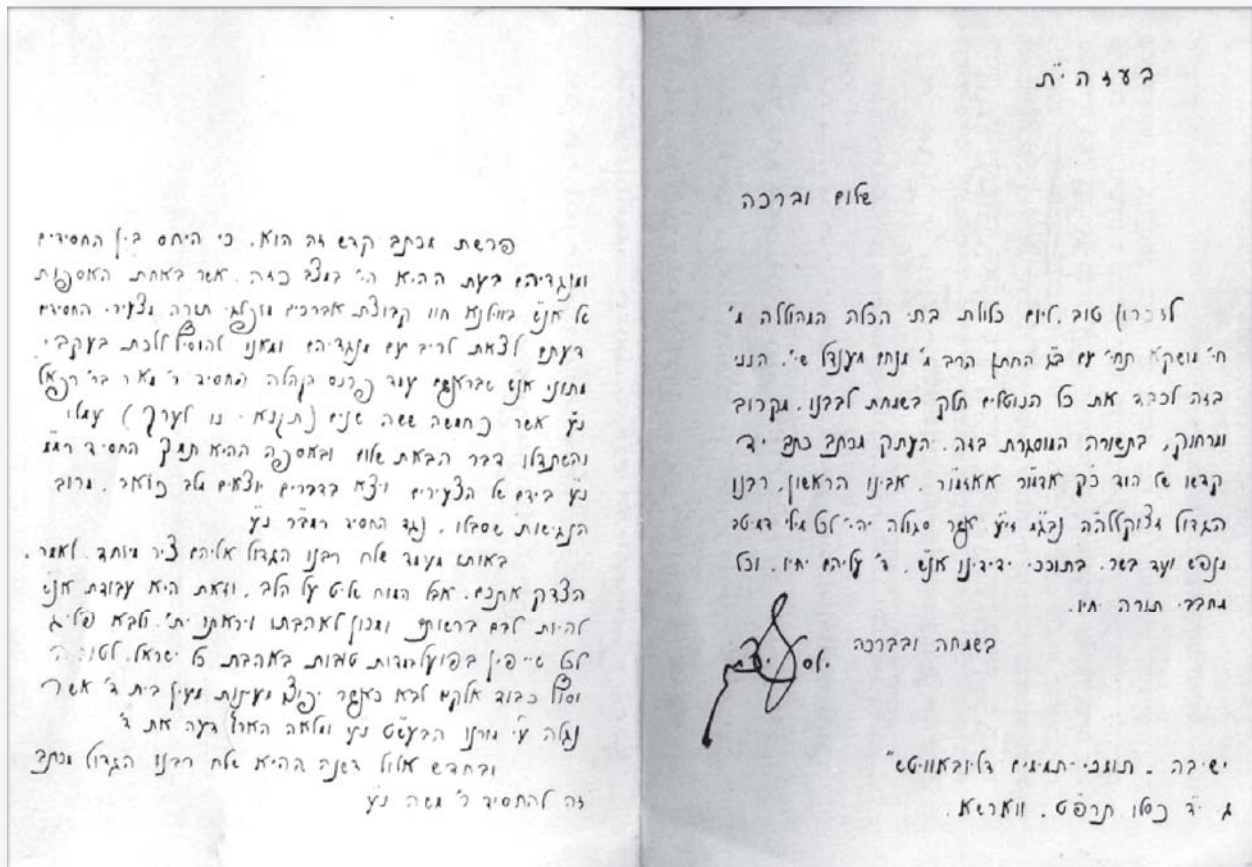 בעזהי"ת
שלום וברכה
לזכרון טוב, ליום כלולת בתי הכלה המהוללה מ'
חי' מושקא תחי' עם ב"ג החתן הרב מ' מנחם מענדל שי', הנני
בזה לכבד את כל הנוטלים חלק בשמחת לבבנו, מקרוב
ומרחוק, בתשורה המוסגרת בזה, העתק מכתב כתב יד
קדשו של הוד כ"ק אדמו"ר אאזמו"ר, אבינו הראשון, רבנו
הגדול נבג"מ זי"ע, אשר סגולה יהי' לכל מילי דמיטב
מנפש ועד בשר, בתוככי ידידינו אנ"ש, ד' עליהם יחיו, וכל
מחבבי תורה יחיו.
בשמחה ובברכה
ישיבה "תומכי-תמימים דליובאוויטש"
ג' י"ד כסלו תרפ"ט, ווארשא.
פרשת מכתב קדש זה הוא, כי היחס בין החסידים
ומנגדיהם בעת ההיא הי' במצב כזה, אשר באחת האספות
של אנ"ש בווילנא חוו קבוצת אברכים מופלגי תורה מצעירי החסידים
דעתם לצאת לריב עם מנגדיהם ומאנו להוסיף ללכת בעקבי
מתוני אנ"ש שבראשם עמד פרנס הקהלה החסיד ר' מאיר בר' רפאל
נ"ע אשר כחמשה ששה שנים (תקנ"א - נו לערך) עמלו
והשתדלו דבר הבאת שלום ובאספה ההיא תמך החסיד
נ"ע בידם של הצעירים ויצא בדברים יוצאים מלב כואב, מרוב
הנגישות שסבלו, נגד החסיד רמב"ר נ"ע
באותו מעמד שלח רבנו הגדול אליהם ציר מיוחד, לאמר,
הצדק אתכם, אבל המוח שליט על הלב, וזאת היא עבודת אנ"ש
להיות לבם ברשותם ומכון לאהבתו ויראתו ית', ולבא
לכל בפועל במדות טובות באהבת כל ישראל, לטובה
כבוד אלקים לבא כאשר יפוצו מעינות מעין בית ד' אשר
נגלה ע"י מורנו הבעש"ט נ"ע ומלאה הארץ דעה את ד'
ובחדש אלול דשנה ההיא שלח רבנו הגדול מכתב
זה להחסיד ר' משה נ"ע